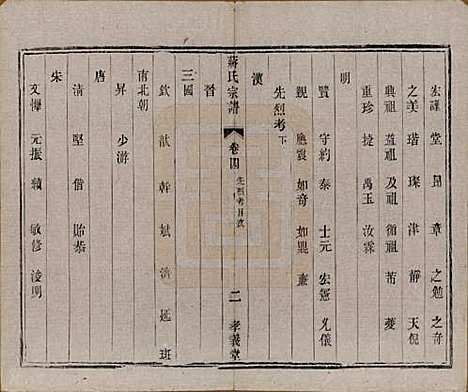 宏謹 堂 昆 章 之勉 之奇
之美 瑎 璨 津 靜 天倪
興祖 益祖 及祖 循祖 芾 薆
重珍 捷 禹玉 汝霖
明
賢 守約 泰 士元 宏憲 允儀
覲 應震 如奇 如
先烈考下
漢
蔣氏宗譜 卷四 先烈考目次 二 孝義堂
晉
三國
欽 猷 幹 斌 濟 延 班
南北朝
昇 少游
唐
清 堅 偕 貽恭
宋
文懌 元振 績 敏修 浚明